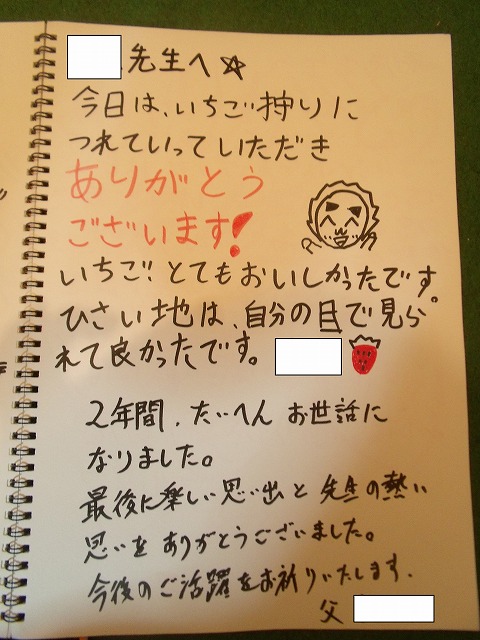 先生へ☆
今日は、いちご狩りに
つれていっていただき
ありがとう
ございます!
いちご!とてもおいしかったです。
ひさい地は、自分の目で見ら
れて良かったです。
2年間、たいへん お世話に
なりました。
最後に楽しい思い出と 先生の熱い
思いを ありがとうございました。
今後のご活躍をお祈りいたします.
父